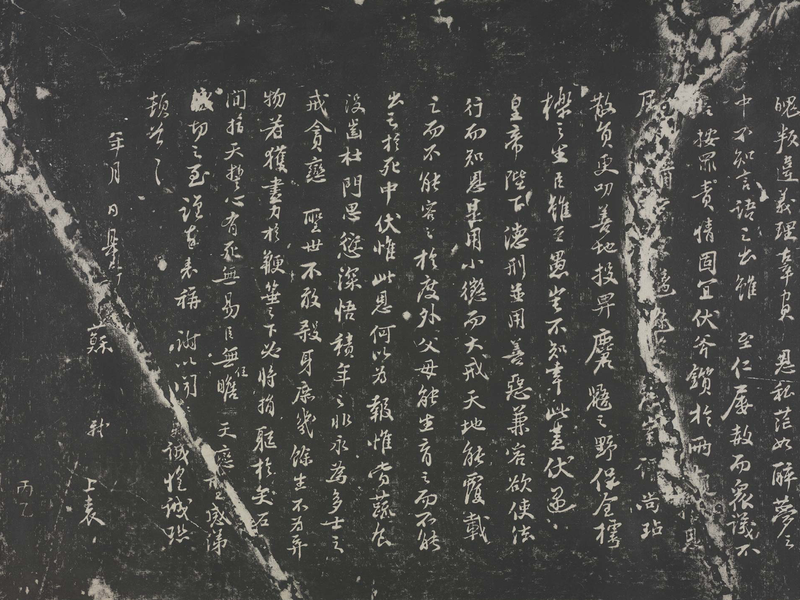 魄叛違義理辜負 恩私茫如醉夢之
中不知言語之出雖 至仁屢赦而衆議不
按罪責情固宜伏斧鑕於兩
屈 尚玷
散員更叨善地投畀麏鼯之野保全樗
櫟之生臣雖至愚豈不知幸此蓋伏遇
皇帝陛下德刑並用善惡兼容欲使法
行而知恩是用小懲而大戒天地能覆載
之而不能容之於度外父母能生育之而不能
出之於死中伏惟此恩何以為報惟當蔬食
没齒杜門思愆深悟積年之非永為多士之
戒貪戀 聖世不敢殺身庶幾餘生不為弃
物若獲盡力於鞭箠之下必將捐軀於矢石
間指天誓心有死無易臣無任瞻 天 感涕
切之至謹奉表稱 謝以聞 誠惶誠恐
頓首
年月日
蘇軾 上表